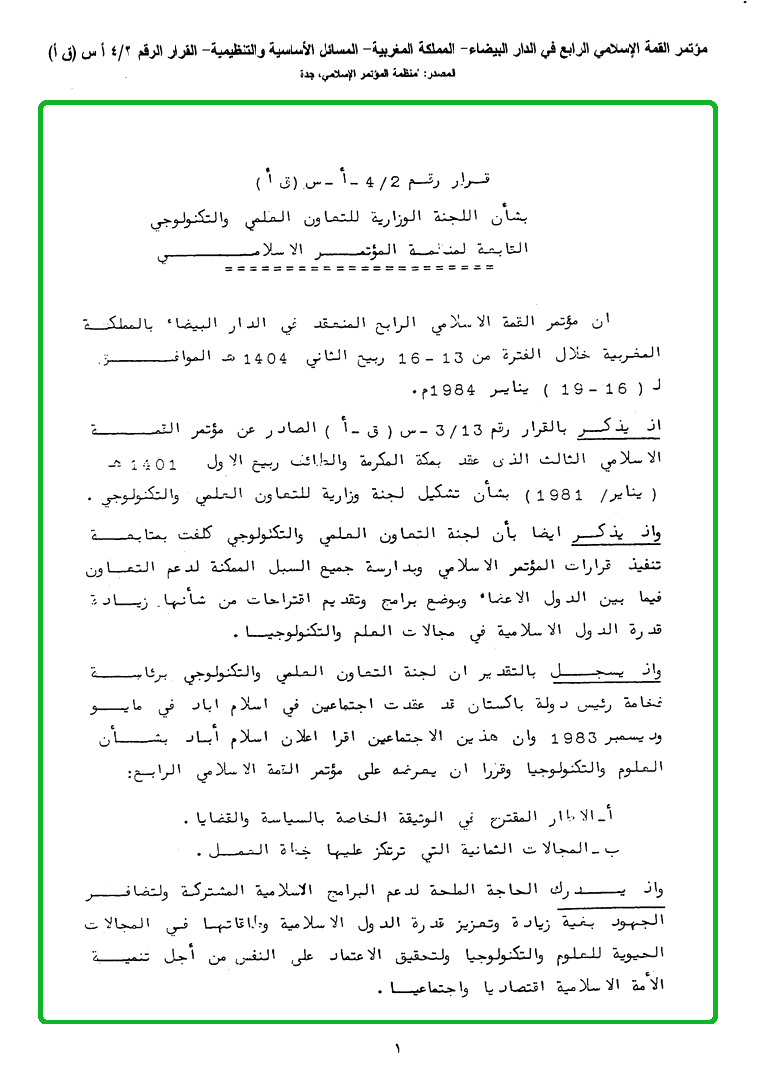 مؤتمر القمة الإسلامي الرابع في الدار البيضاء- المملكة المغربية- المسائل الأساسية والتنظيمية- القرار الرقم ٤/٢ أ س (ق أ)
المصدر: "منظمة المؤتمر الإسلامي، جدة
قرار رقم 4/2 -أ-س (ق أ)
بشأن اللجنة الوزارية للتعاون العلمي والتكنولوجي
التابعة لمنظمة المؤتمر الاسلامي
========================
ان مؤتمر القمة الاسلامي الرابع المنعقد في الدار البيضاء بالمملكة
المغربية خلال الفترة من 13-16 ربيع الثاني 1404 هـ الموافق
لـ ( 16-19 ) يناير 1984م.
اذ يذكر بالقرار رقم 3/13 -س ( ق -أ ) الصادر عن مؤتمر القمة
الاسلامي الثالث الذى عقد بمكة المكرمة والطائف ربيع الاول 1401 هـ
( يناير/ 1981) بشأن تشكيل لجنة وزارية للتعاون العلمي والتكنولوجي .
واذ يذكر ايضا بأن لجنة التعاون العلمي والتكنولوجي كلفت بمتابعة
تنفيذ قرارات المؤتمر الاسلامي وبدارسة جميع السبل الممكنة لدعم التعاون
فيما بين الدول الاعضاء وبوضع برامج وتقديم اقتراحات من شأنها زيادة
قدرة الدول الاسلامية في مجالات العلم والتكنولوجيا .
واذ يسجل بالتقدير ان لجنة التعاون العلمي والتكنولوجي برئاسة
فخامة رئيس دولة باكستان قد عقدت اجتماعين في اسلام اباد في مايو
وديسمبر 1983 وان هذين الاجتماعين اقرا اعلان اسلام أباد بشأن
العلوم والتكنولوجيا وقررا ان يعرضه على مؤتمر القمة الاسلامي الرابع:
أ-الاطار المقترح في الوثيقة الخاصة بالسياسة والقضايا .
ب-المجالات الثمانية التي ترتكز عليها خطة العمل .
واذ يدرك الحاجة الملحة لدعم البرامج الاسلامية المشتركة ولتضافر
الجهود بغية زيادة وتعزيز قدرة الدول الاسلامية وطاقاتها في المجالات
الحيوية للعلوم والتكنولوجيا ولتحقيق الاعتماد على النفس من أجل تنمية
الأمة الاسلامية اقتصاديا واجتماعيا .
١